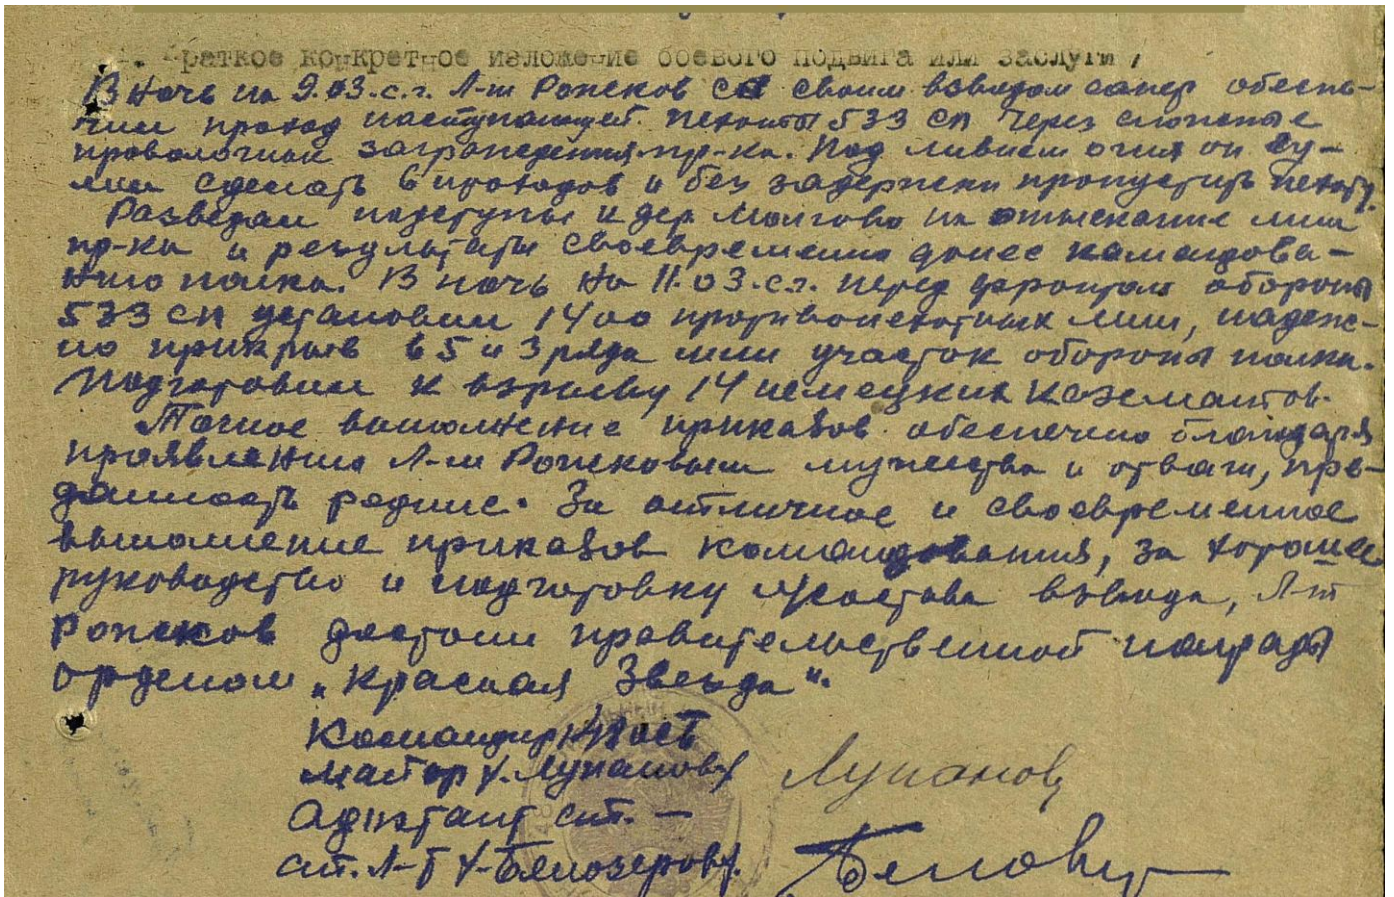 Краткое конкретное изложение боевого подвига или заслуги
В ночь на 9.03.с.г. Л-т Рожков со своим взводом сапер обеспе-
чил проход наступающей пехоты 533 сп через сложные
проволочные заграждения пр-ка. Под ливнем огня он су-
мел сделать 6 проходов и без задержки пропустить пехоту.
Разведал подступы к дер. на отыскание мин
пр-ка и результаты своевременно донес командова-
нию полка. В ночь на 11.03.с.г. перед фронтом обороны
533 сп установил 1400 противопехотных мин, надеж-
но прикрыв в 5 и 3 ряда мин участок обороны полка.
Подготовил к взрыву 14 немецких казематов.
Точное выполнение приказов обеспечено благодаря
проявлению Л-м Рожковым мужества и отваги, пре-
данность родине. За отличное и своевременное
выполнение приказов командования, за хорошее
руководство и подготовку л/состава взвода, Л-т
Рожков достоин правительственной награды
орденом „Красная Звезда“.
Командир
майор /Лупанов/ Лупанов
Адъютант ст. —
ст. Л-т /Белозеров/.